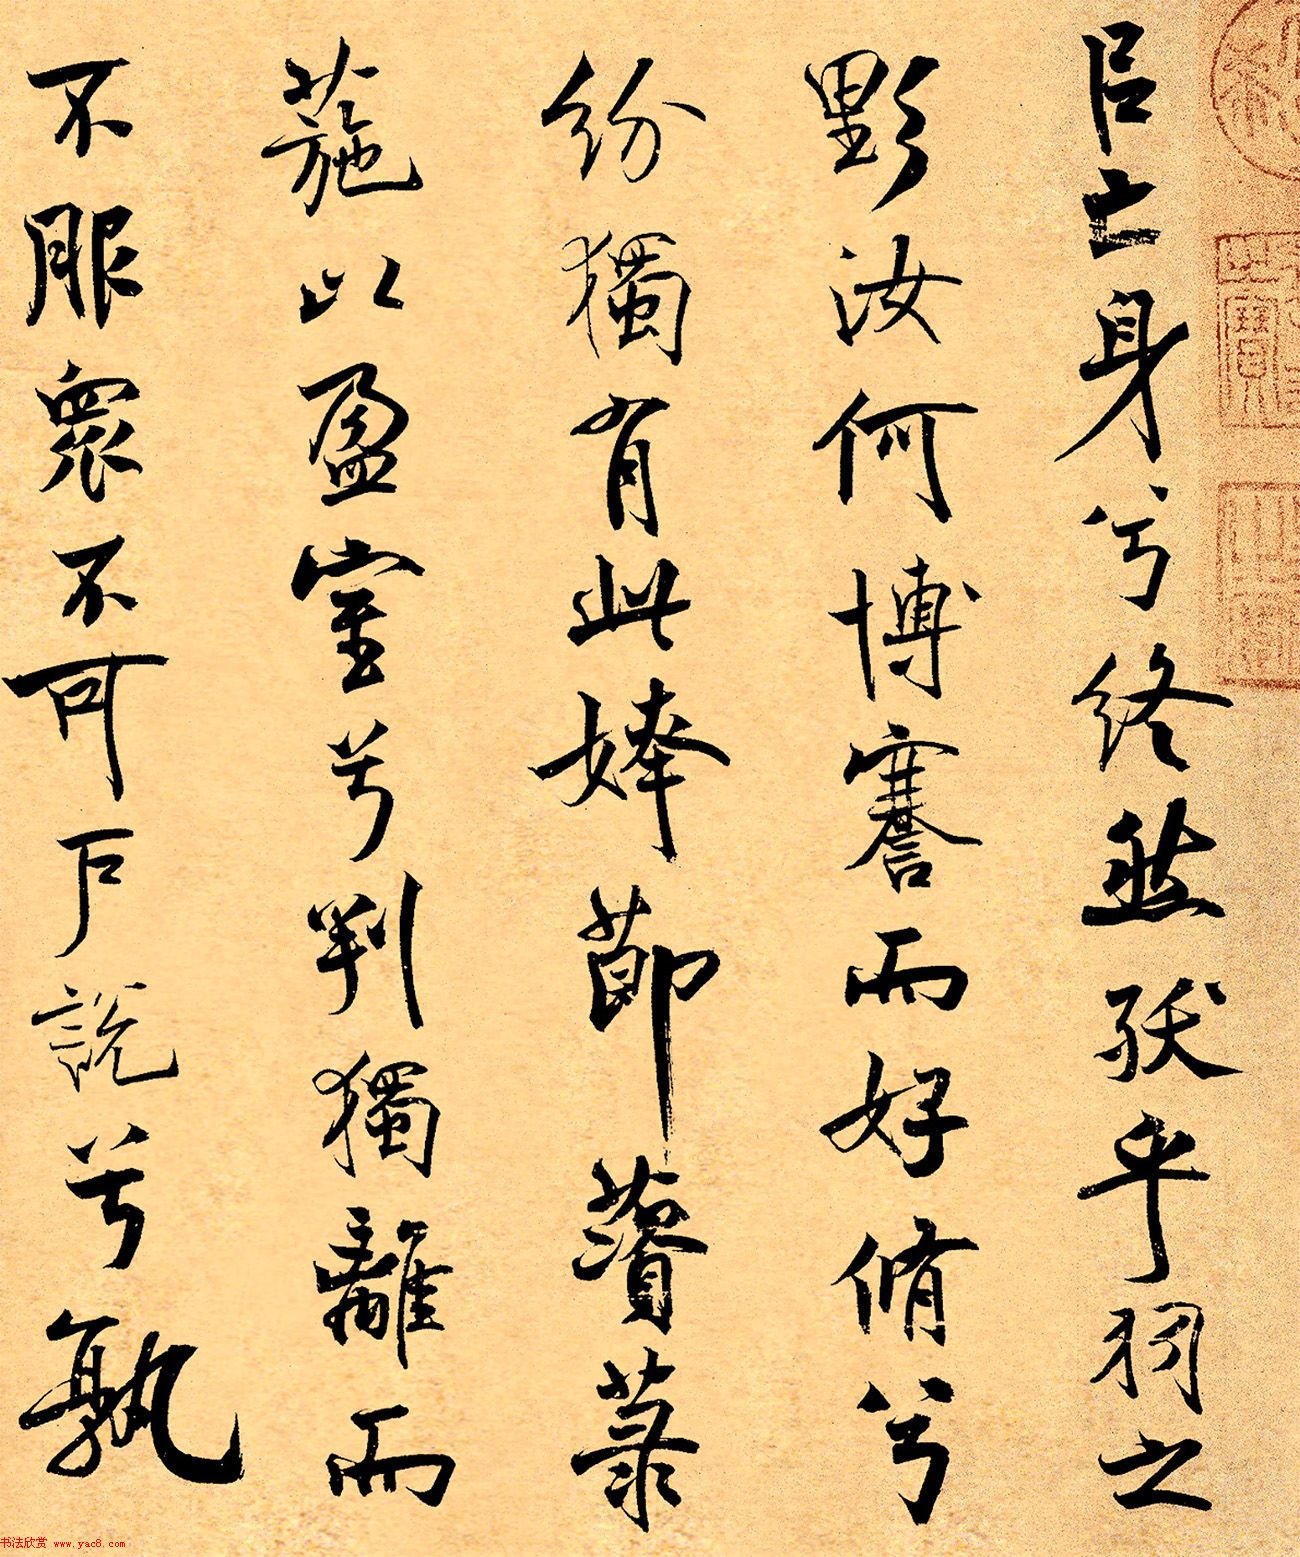 㠯亡身兮終然殀乎羽之
野汝何博謇而好脩兮
紛獨有此姱莭薋菉
葹以盈室兮判獨離而
不服眾不可戶說兮孰
书法欣赏 www.yac8.com